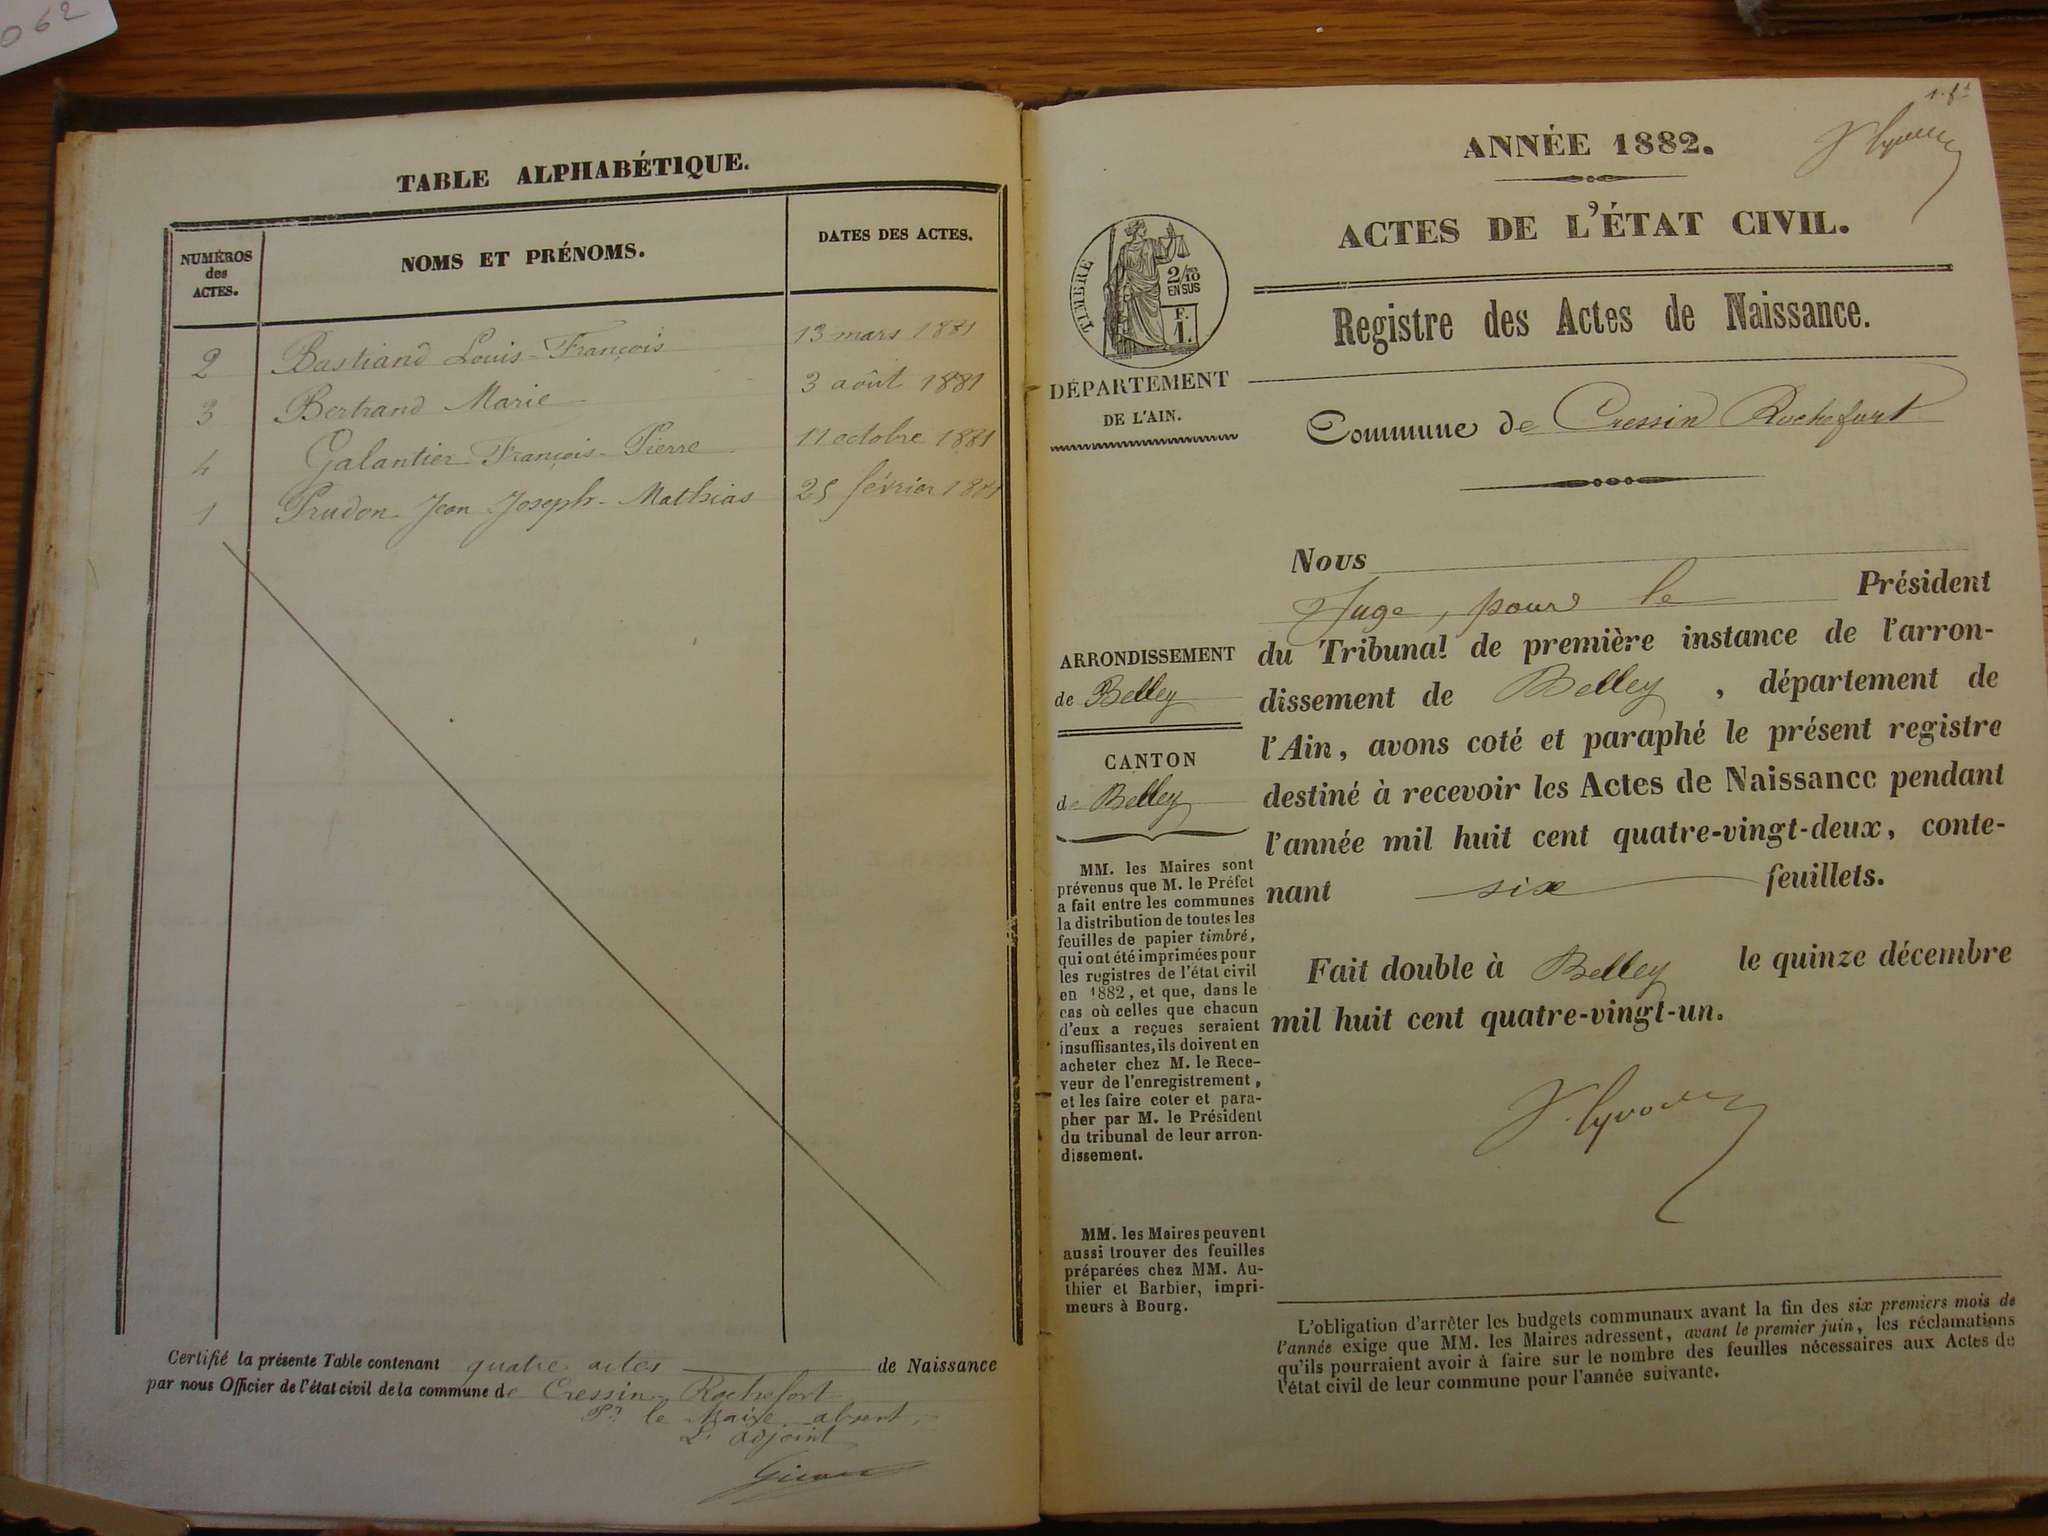 062
TABLE ALPHABÉTIQUE.
NUMÉROS
des
ACTES.
NOMS ET PRÉNOMS.
DATES DES ACTES.
2 Bastiand Louis-François 13 mars 1881
3 Bertrand Marie 3 août 1881
4 Galantier François-Pierre 11 octobre 1881
1 Prudon Jean Joseph-Mathias 25 février 1881
Certifié la présente Table contenant quatre actes de Naissance
par nous Officier de l'état civil de la commune de Cressin Rochefort
Pr le Maire absent,
L'adjoint
ANNÉE 1882.
ACTES DE L'ÉTAT CIVIL.
Registre des Actes de Naissance.
TIMBRE
2/10
EN SUS
F.
1.
DÉPARTEMENT
DE L'AIN.
Commune de Cressin Rochefort
ARRONDISSEMENT
de Belley
CANTON
de Belley
MM. les Maires sont
prévenus que M. le Préfet
a fait entre les communes
la distribution de toutes les
feuilles de papier timbré,
qui ont été imprimées pour
les registres de l'état civil
en 1882, et que, dans le
cas où celles que chacun
d'eux a reçues seraient
insuffisantes, ils doivent en
acheter chez M. le Rece-
veur de l'enregistrement,
et les faire coter et para-
pher par M. le Président
du tribunal de leur arron-
dissement.
MM. les Maires peuvent
aussi trouver des feuilles
préparées chez MM. Au-
thier et Barbier, impri-
meurs à Bourg.
Nous
Juge, pour le Président
du Tribunal de première instance de l'arron-
dissement de Belley, département de
l'Ain, avons coté et paraphé le présent registre
destiné à recevoir les Actes de Naissance pendant
l'année mil huit cent quatre-vingt-deux, conte-
nant six feuillets.
Fait double à Belley le quinze décembre
mil huit cent quatre-vingt-un.
L'obligation d'arrêter les budgets communaux avant la fin des six premiers mois de
l'année exige que MM. les Maires adressent, avant le premier juin, les réclamations
qu'ils pourraient avoir à faire sur le nombre des feuilles nécessaires aux Actes de
l'état civil de leur commune pour l'année suivante.